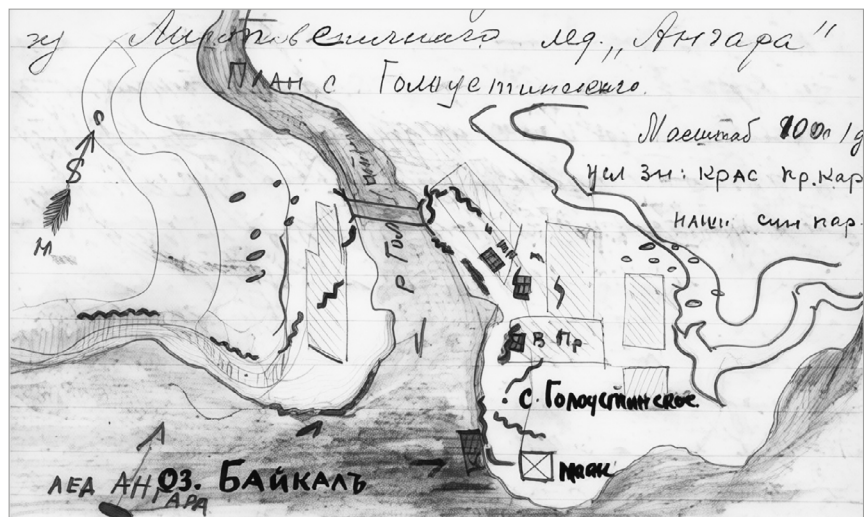 зу Лит ледовеничнаго лед. „Ангара"
План с Голоустинского.
Масштаб 100 / д
усл зн: крас пр. кар
наши син кар.
С
м
р Гол
В Пр
с. Голоустинское.
маяк
лед Ангара
оз. Байкалъ